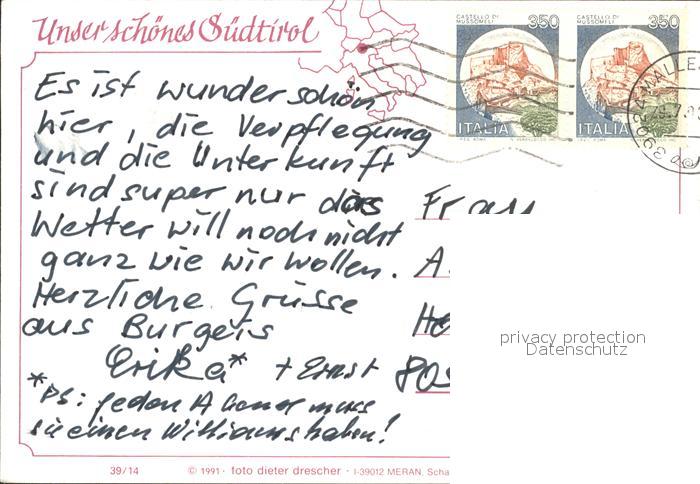 Unser schönes Südtirol
CASTELLO DI MUSSOMELI 350
ITALIA
CASTELLO DI MUSSOMELI 350
ITALIA
39024 MALLES
Es ist wunderschön
hier, die Verpflegung
und die Unterkunft
sind super nur das
Wetter will noch nicht
ganz wie wir wollen.
Herzliche Grüsse
aus Burgeis
Erika* + Ernst
*PS: jeden Abend muss
sie einen Williams haben!
Frau
A.
805
privacy protection
Datenschutz
39/14 © 1991 · foto dieter drescher · I-39012 MERAN, Scha